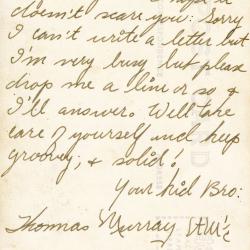 doesn't scare you: Sorry
I can't write a letter but
I'm very busy but please
drop me a line or so &
I'll answer. Well take
care of yourself and keep
groovy, & solid!
Your kid Bro:
Thomas Murray